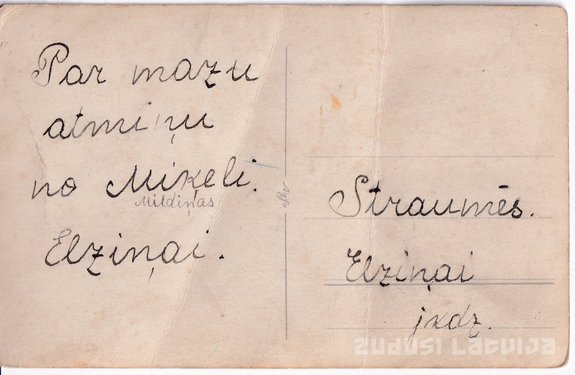 Par mazu
atmiņu
no Miķeli.
Mildiņas
Elziņai.
Straumēs.
Elziņai
jkdz.
zudusi Latvija